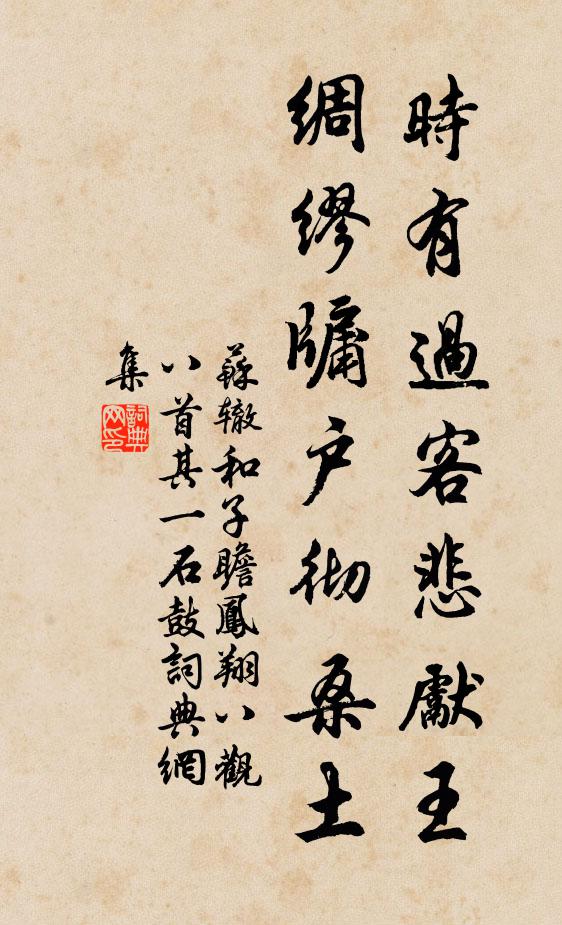 時有過客悲獻王
綢繆牖户彻桑土
蘇辙和子瞻鳳翔八觀
八首其一石鼓詞典網
集
詞典
网印